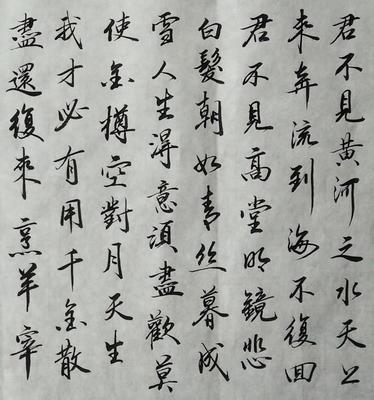 君不見黃河之水天上
來奔流到海不復回
君不見高堂明鏡悲
白髮朝如青絲暮成
雪人生得意須盡歡莫
使金樽空對月天生
我才必有用千金散
盡還復來烹羊宰